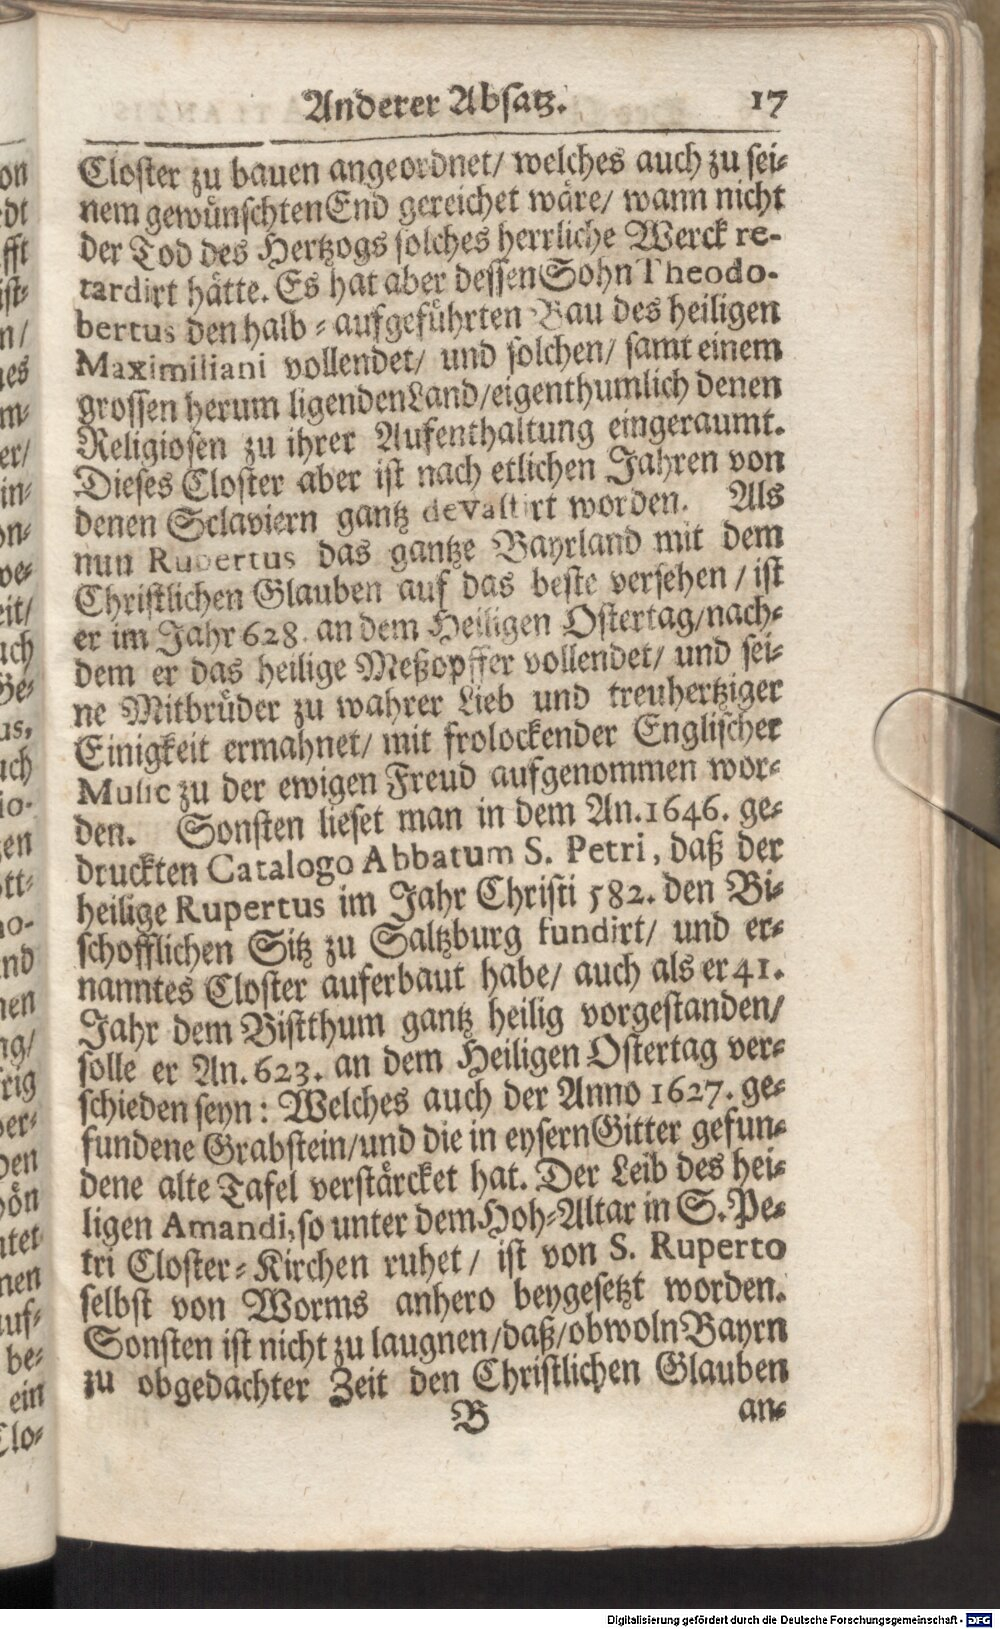 Anderer Absatz. 17
Closter zu bauen angeordnet/ welches auch zu sei-
nem gewünschten End gereichet wäre/ wann nicht
der Tod des Hertzogs solches herrliche Werck re-
tardirt hätte. Es hat aber dessen Sohn Theodo-
bertus den halb-aufgeführten Bau des heiligen
Maximiliani vollendet/ und solchen/ samt einem
grossen herum ligenden Land/ eigenthumlich denen
Religiosen zu ihrer Aufenthaltung eingeraumt.
Dieses Closter aber ist nach etlichen Jahren von
denen Sclaviern gantz devastirt worden. Als
nun Rupertus das gantze Bayrland mit dem
Christlichen Glauben auf das beste versehen / ist
er im Jahr 628. an dem Heiligen Ostertag/ nach-
dem er das heilige Meßopffer vollendet/ und sei-
ne Mitbrüder zu wahrer Lieb und treuhertziger
Einigkeit ermahnet/ mit frolockender Englischer
Music zu der ewigen Freud aufgenommen wor-
den. Sonsten lieset man in dem An. 1646. ge-
druckten Catalogo Abbatum S. Petri, daß der
heilige Rupertus im Jahr Christi 582. den Bi-
schofflichen Sitz zu Saltzburg fundirt/ und er-
nanntes Closter auferbaut habe/ auch als er 41.
Jahr dem Bistthum gantz heilig vorgestanden/
solle er An. 623. an dem Heiligen Ostertag ver-
schieden seyn: Welches auch der Anno 1627. ge-
fundene Grabstein/ und die in eysern Gitter gefun-
dene alte Tafel verstärcket hat. Der Leib des hei-
ligen Amandi, so unter dem Hoh-Altar in S. Pe-
tri Closter-Kirchen ruhet/ ist von S. Ruperto
selbst von Worms anhero beygesetzt worden.
Sonsten ist nicht zu laugnen/ daß/ obwoln Bayrn
zu obgedachter Zeit den Christlichen Glauben
B an-
Digitalisierung gefördert durch die Deutsche Forschungsgemeinschaft - DFG